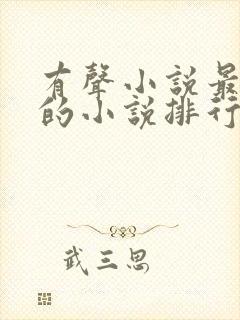 有聲小說最
的小說排行
武三思